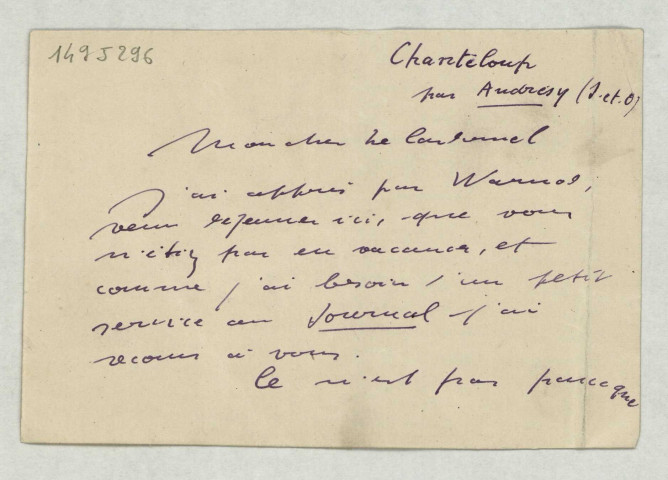 1495296
Chanteloup
par Andrésy (S.et.O)
Mon cher Le Cardonnel
J'ai appris par Warnod,
venu déjeuner ici, que vous
n'étiez pas en vacances, et
comme j'ai besoin d'un petit
service au Journal j'ai
recours à vous.
Ce n'est pas parceque